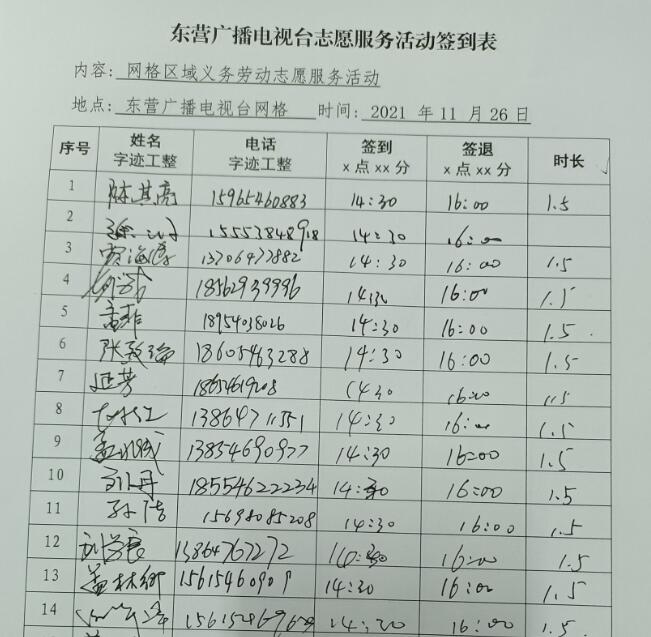 东营广播电视台志愿服务活动签到表
内容: 网格区域义务劳动志愿服务活动
地点: 东营广播电视台网格 时间: 2021 年 11 月 26 日
序号 姓名 电话 签到 签退 时长
字迹工整 字迹工整 x 点 xx 分 x 点 xx 分
1 陈其亮 15965460883 14:30 16:00 1.5
2 15553848918 14:30 16:00
3 贾海 13706477882 14:30 16:00 1.5
4 18562939996 14:30 16:00 1.5
5 18954038026 14:30 16:00 1.5
6 张 18605463288 14:30 16:00 1.5
7 芳 14:30 16:00 1.5
8 14:30 16:00 1.5
9 13854690977 14:30 16:00 1.5
10 孙丹 18554622234 14:30 16:00 1.5
11 孙洁 15698085208 14:30 16:00 1.5
12 刘 13864767272 14:30 16:00 1.5
13 孟林乡 15615460909 14:30 16:00 1.5
14 14:30 16:00 1.5